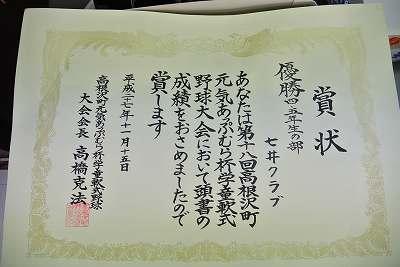 賞状
優勝 四五年生の部
七井クラブ
あなたは第十八回高根沢町
元気あっぷむら杯学童軟式
野球大会において頭書の
成績をおさめましたので
賞します
平成二七年十一月十五日
高根沢町元気あっぷむら杯学童軟式野球
大会会長 高橋克法